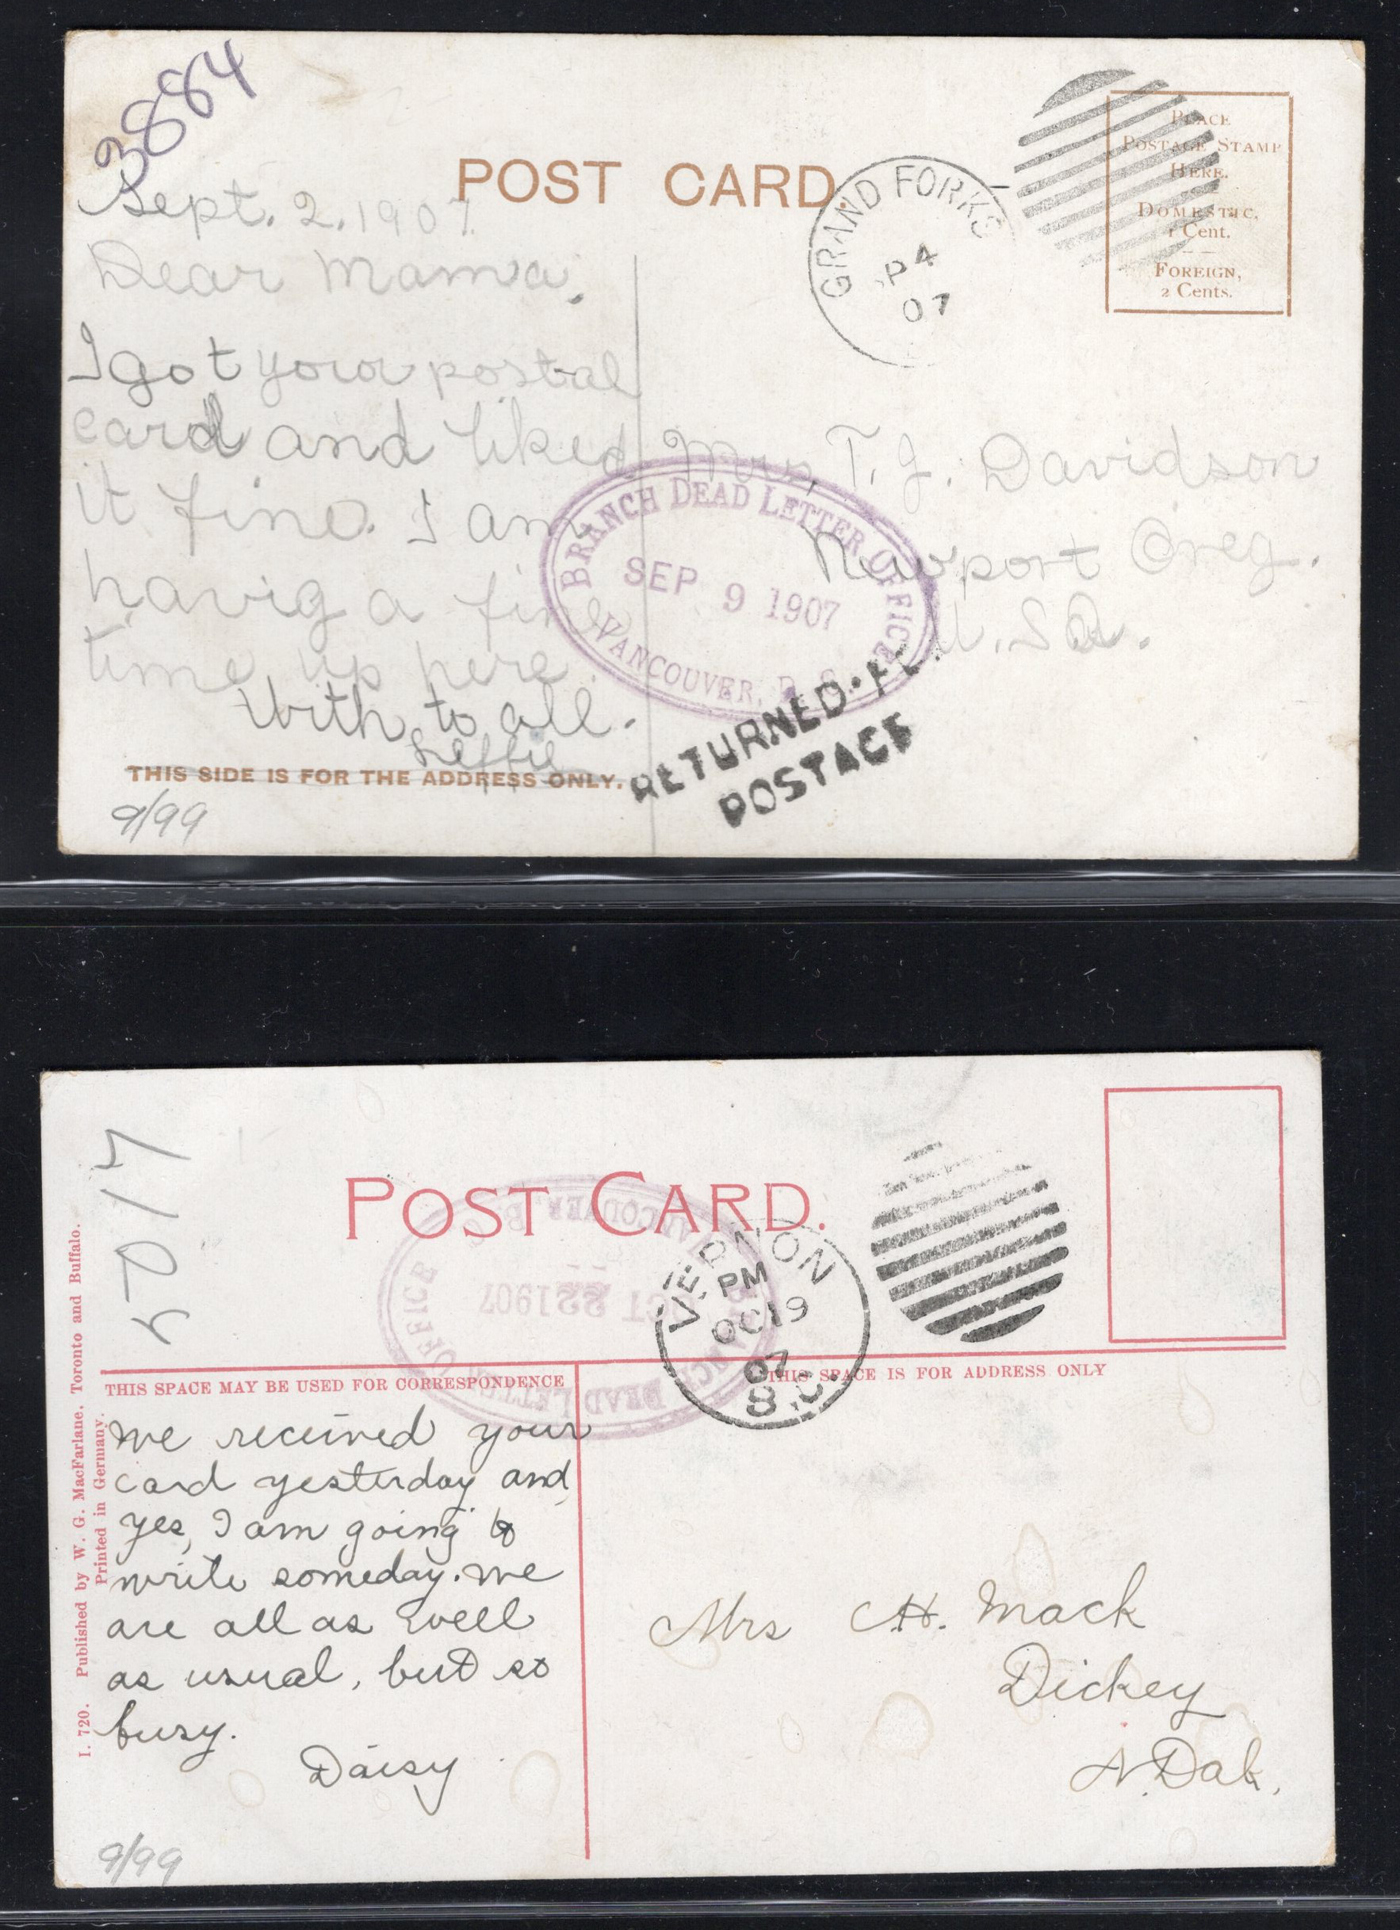 3884
POST CARD.
PLACE
POSTAGE STAMP
HERE.
DOMESTIC,
1 Cent.
FOREIGN,
2 Cents.
GRAND FORKS
P 4
07
Sept. 2. 1907.
Dear Mama.
I got your postal
card and liked
it fine. I am
havig a fine
time up here.
With to all.
Leffie
Mrs, T. J. Davidson
Newport Oreg.
U.S.A.
BRANCH DEAD LETTER OFFICE
SEP 9 1907
VANCOUVER, B.C.
RETURNED
POSTAGE
THIS SIDE IS FOR THE ADDRESS ONLY.
9/99
5017
POST CARD.
VANCOUVER B.C.
OCT 22 1907
BRANCH DEAD LETTER OFFICE
VERNON
PM
OC 19
07
B.C.
THIS SPACE MAY BE USED FOR CORRESPONDENCE
THIS SPACE IS FOR ADDRESS ONLY
I. 720. Published by W. G. MacFarlane, Toronto and Buffalo.
Printed in Germany.
We received your
card yesterday and
yes, I am going to
write someday. We
are all as well
as usual, but so
busy.
Daisy
Mrs H. Mack
Dickey
N. Dak.
9/99